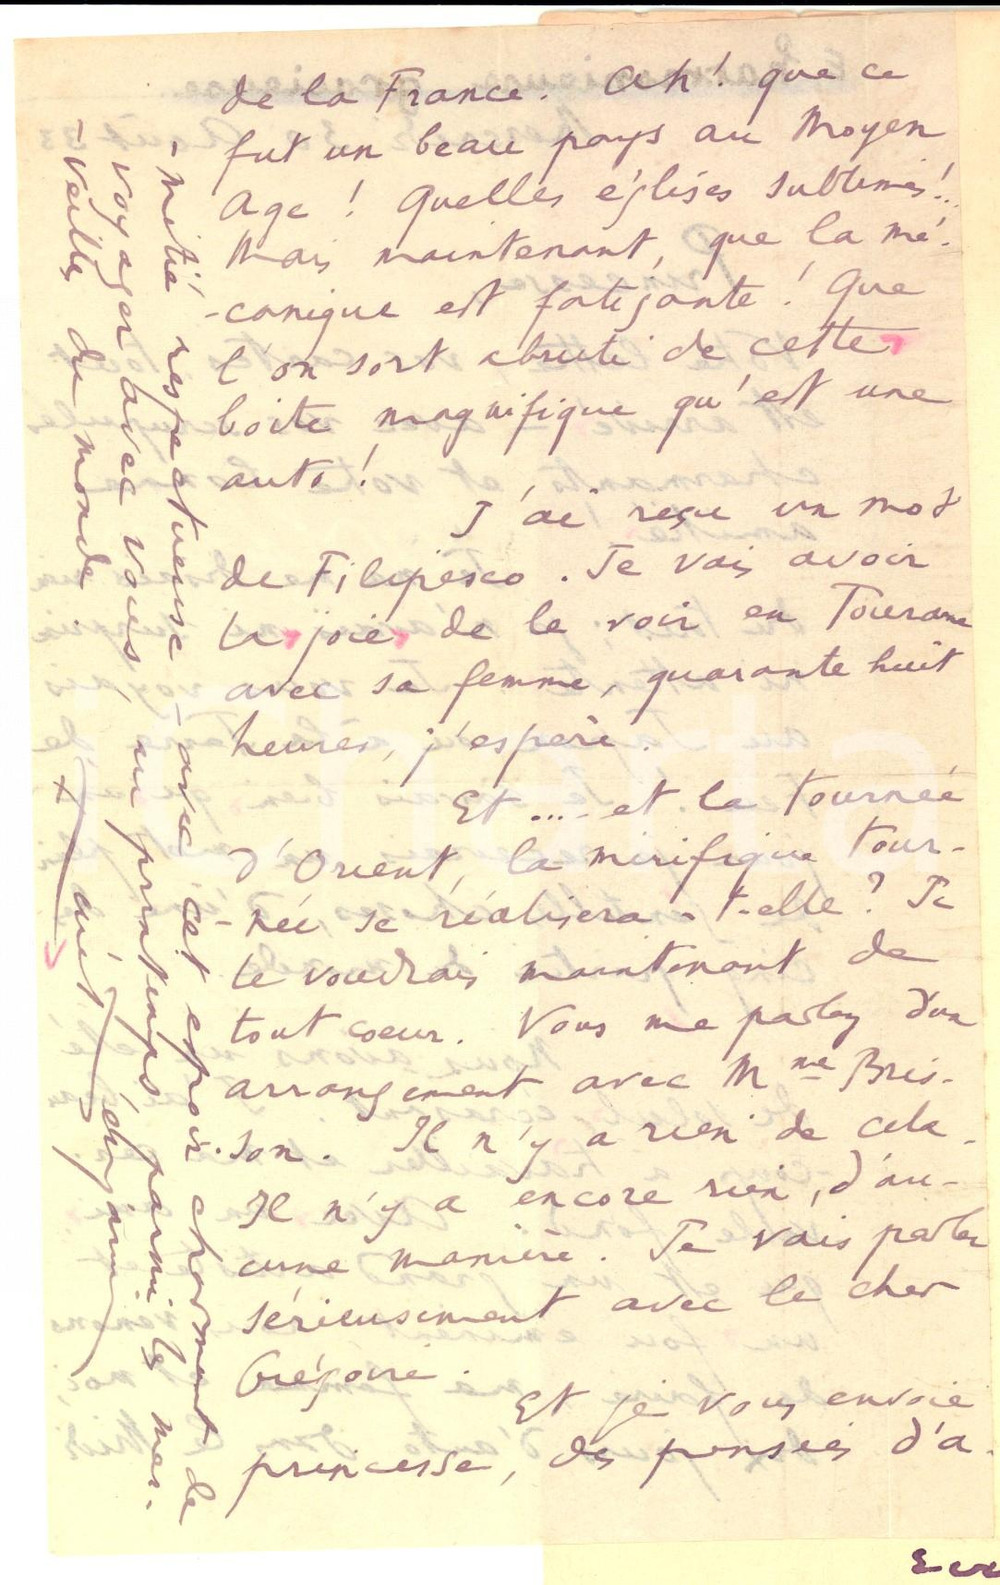 de la France. Ah! que ce
fut un beau pays au Moyen
Age! Quelles églises sublimes!..
Mais maintenant, que la mé-
-canique est fatigante! Que
l'on sort abruti de cette
boite magnifique qu'est une
auto!
J'ai reçu un mot
de Filipesco. Je vais avoir
la joie de le voir en Touraine
avec sa femme, quarante huit
heures, j'espère.
Et .... et la tournée
d'Orient, la mirifique tour-
-née se réalisera-t-elle? Je
le voudrais maintenant de
tout coeur. Vous me parlez d'un
arrangement avec Mme Bris-
-son. Il n'y a rien de cela.
Il n'y a encore rien, d'au-
cune manière. Je vais parler
sérieusement avec le cher
Grégoire.
Et je vous envoie
princesse, des pensées d'a-
-mitié respectueuse - avec cet espoir charmant de
voyager avec vous, au printemps parmi les mer-
-veilles du monde